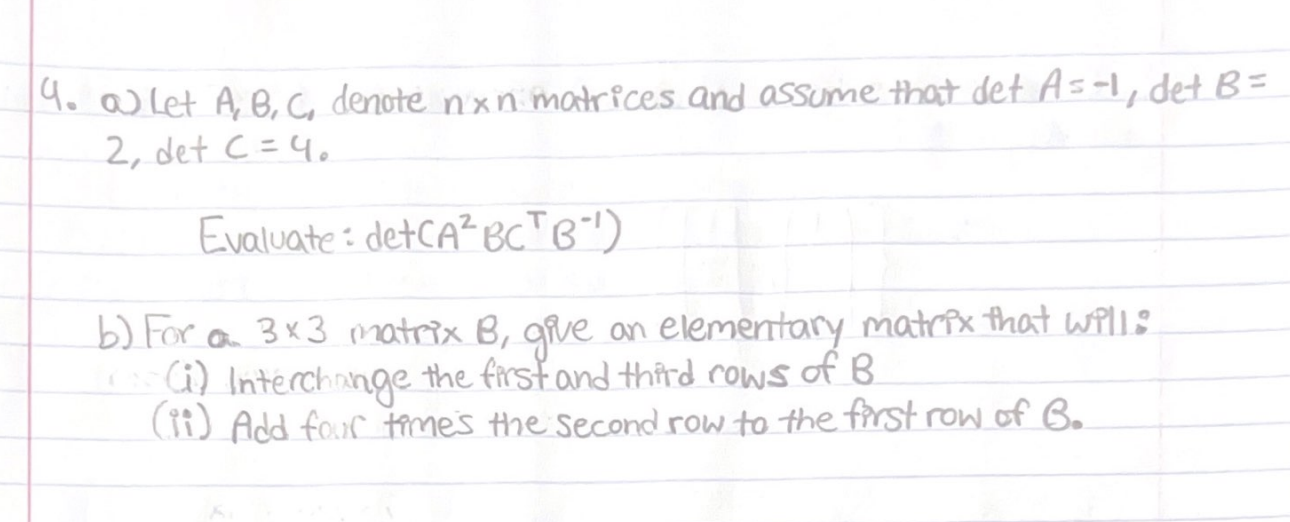 4. a) Let A, B, C, denote n×n matrices and assume that det A = -1, det B =
2, det C = 4.
Evaluate: det(A² BCᵀ B⁻¹)
b) For a 3×3 matrix B, give an elementary matrix that will:
(i) Interchange the first and third rows of B
(ii) Add four times the second row to the first row of B.